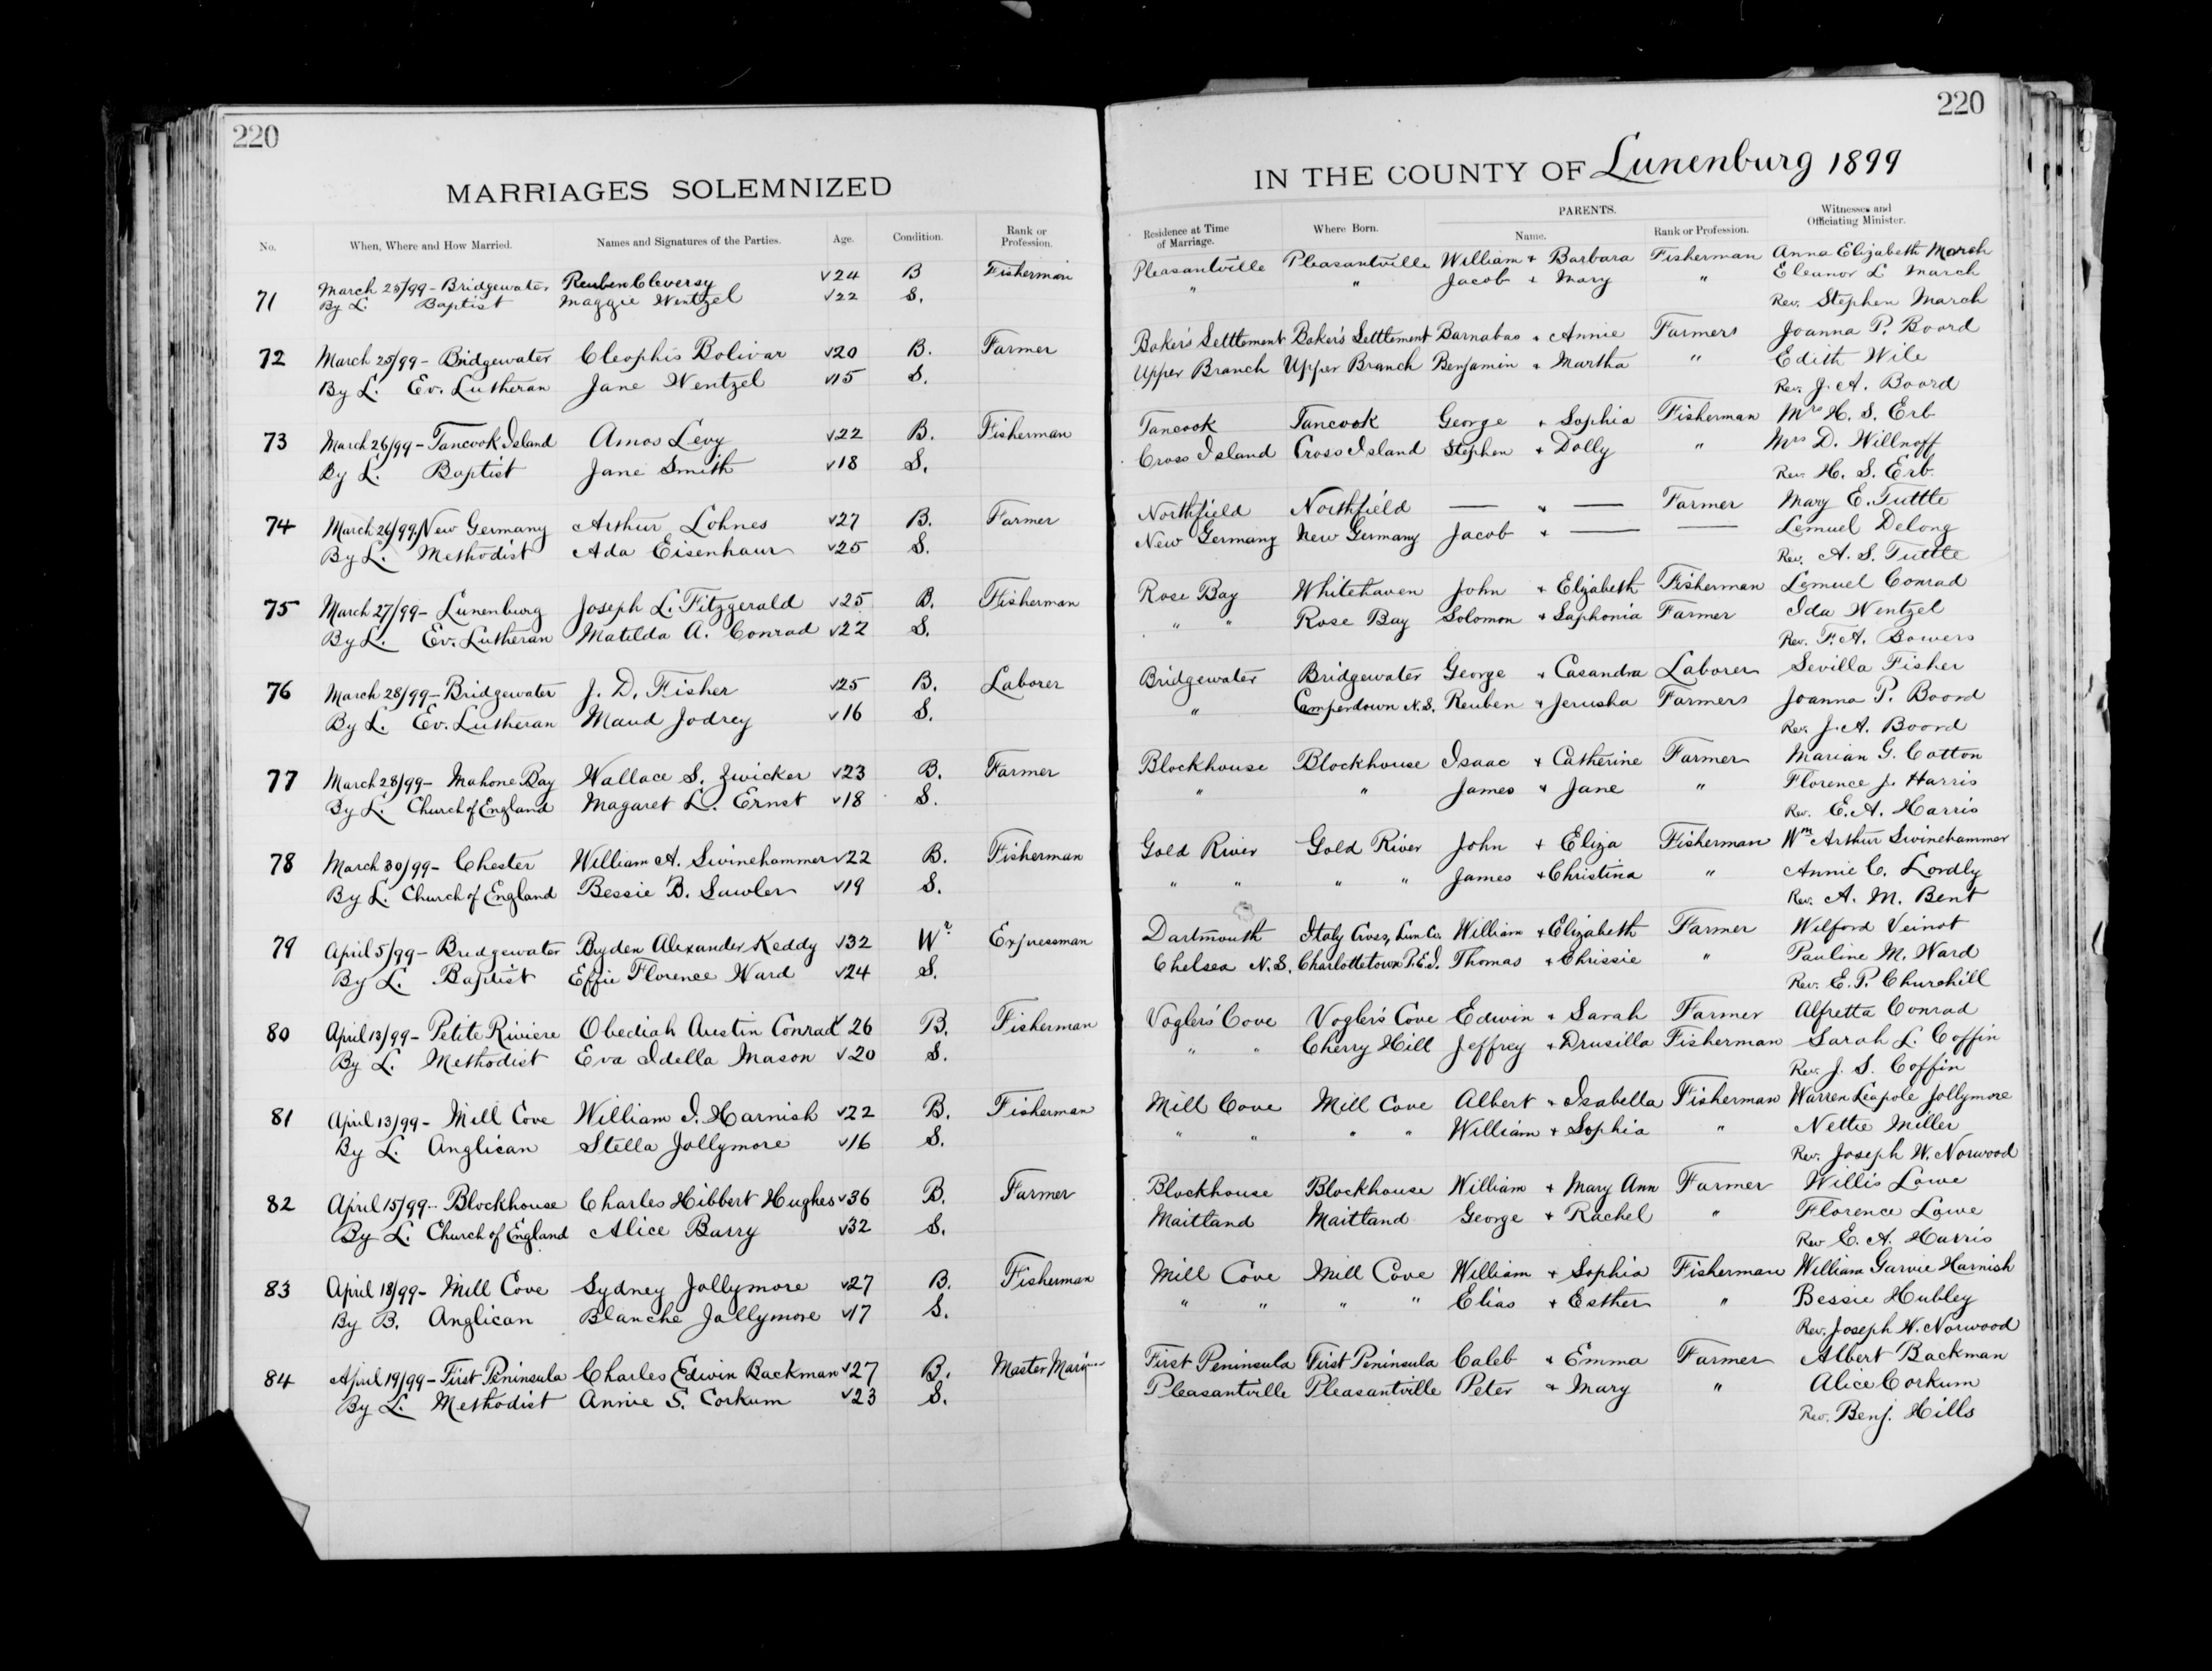 220
MARRIAGES SOLEMNIZED
No. When, Where and How Married. Names and Signatures of the Parties. Age. Condition. Rank or Profession.
71 March 25/99 - Bridgewater Reuben Cleversy √24 B Fisherman
By L. Baptist Maggie Wentzel √22 S.
72 March 25/99 - Bridgewater Cleophis Bolivar √20 B. Farmer
By L. Ev. Lutheran Jane Wentzel √15 S.
73 March 26/99 - Tancook Island Amos Levy √22 B. Fisherman
By L. Baptist Jane Smith √18 S.
74 March 26/99. New Germany Arthur Lohnes √27 B. Farmer
By L. Methodist Ada Eisenhaur √25 S.
75 March 27/99 - Lunenburg Joseph L. Fitzgerald √25 B. Fisherman
By L. Ev. Lutheran Matilda A. Conrad √22 S.
76 March 28/99 - Bridgewater J. D. Fisher √25 B. Laborer
By L. Ev. Lutheran Maud Jodrey √16 S.
77 March 28/99 - Mahone Bay Wallace S. Zwicker √23 B. Farmer
By L. Church of England Magaret L. Ernst √18 S.
78 March 30/99 - Chester William A. Swinehammer √22 B. Fisherman
By L. Church of England Bessie B. Sawler √19 S.
79 April 5/99 - Bridgewater Byden Alexander Keddy √32 Wr Expressman
By L. Baptist Effie Florence Ward √24 S.
80 April 13/99 - Petite Riviere Obediah Austin Conrad √26 B. Fisherman
By L. Methodist Eva Idella Mason √20 S.
81 April 13/99 - Mill Cove William I. Harnish √22 B. Fisherman
By L. Anglican Stella Jollymore √16 S.
82 April 15/99 - Blockhouse Charles Hibbert Hughes √36 B. Farmer
By L. Church of England Alice Barry √32 S.
83 April 18/99 - Mill Cove Sydney Jollymore √27 B. Fisherman
By B. Anglican Blanche Jollymore √17 S.
84 April 19/99 - First Peninsula Charles Edwin Backman √27 B. Master Mariner
By L. Methodist Annie S. Corkum √23 S.
220
IN THE COUNTY OF Lunenburg 1899
Residence at Time of Marriage. Where Born. PARENTS. Name. Rank or Profession. Witnesses and Officiating Minister.
Pleasantville Pleasantville William + Barbara Fisherman Anna Elizabeth March
" " Jacob + Mary " Eleanor L March
Rev. Stephen March
Baker's Settlement Baker's Settlement Barnabas + Annie Farmers Joanna P. Boord
Upper Branch Upper Branch Benjamin + Martha " Edith Wile
Rev. J. A. Boord
Tancook Tancook George + Sophia Fisherman Mrs H. S. Erb
Cross Island Cross Island Stephen + Dolly " Mrs D. Willnoff
Rev. H. S. Erb
Northfield Northfield — " — Farmer Mary E. Tuttle
New Germany New Germany Jacob + — — Lemuel Delong
Rev. A. S. Tuttle
Rose Bay Whitehaven John + Elizabeth Fisherman Lemuel Conrad
" " Rose Bay Solomon + Saphonia Farmer Ida Wentzel
Rev. F. A. Bowers
Bridgewater Bridgewater George + Casandra Laborer Sevilla Fisher
" Camperdown N.S. Reuben + Jerusha Farmers Joanna P. Boord
Rev. J. A. Boord
Blockhouse Blockhouse Isaac + Catherine Farmer Marian G. Cotton
" " James + Jane " Florence J. Harris
Rev. E. A. Harris
Gold River Gold River John + Eliza Fisherman Wm Arthur Swinehammer
" " " " James + Christina " Annie C. Lordly
Rev. A. M. Bent
Dartmouth Italy Cross, Lun Co. William + Elizabeth Farmer Wilford Veinot
Chelsea N.S. Charlottetown P.E.I. Thomas + Chrissie " Pauline M. Ward
Rev. E. P. Churchill
Voglers' Cove Vogler's Cove Edwin + Sarah Farmer Alfretta Conrad
" " Cherry Hill Jeffrey + Drusilla Fisherman Sarah L. Coffin
Rev. J. S. Coffin
Mill Cove Mill Cove Albert + Isabella Fisherman Warren Leapole Jollymore
" " " " William + Sophia " Nettie Miller
Rev. Joseph W. Norwood
Blockhouse Blockhouse William + Mary Ann Farmer Willis Lowe
Maitland Maitland George + Rachel " Florence Lowe
Rev E. A. Harris
Mill Cove Mill Cove William + Sophia Fisherman William Garvie Harnish
" " " " Elias + Esther " Bessie Hubley
Rev. Joseph W. Norwood
First Peninsula First Peninsula Caleb + Emma Farmer Albert Backman
Pleasantville Pleasantville Peter + Mary " Alice Corkum
Rev. Benj. Hills